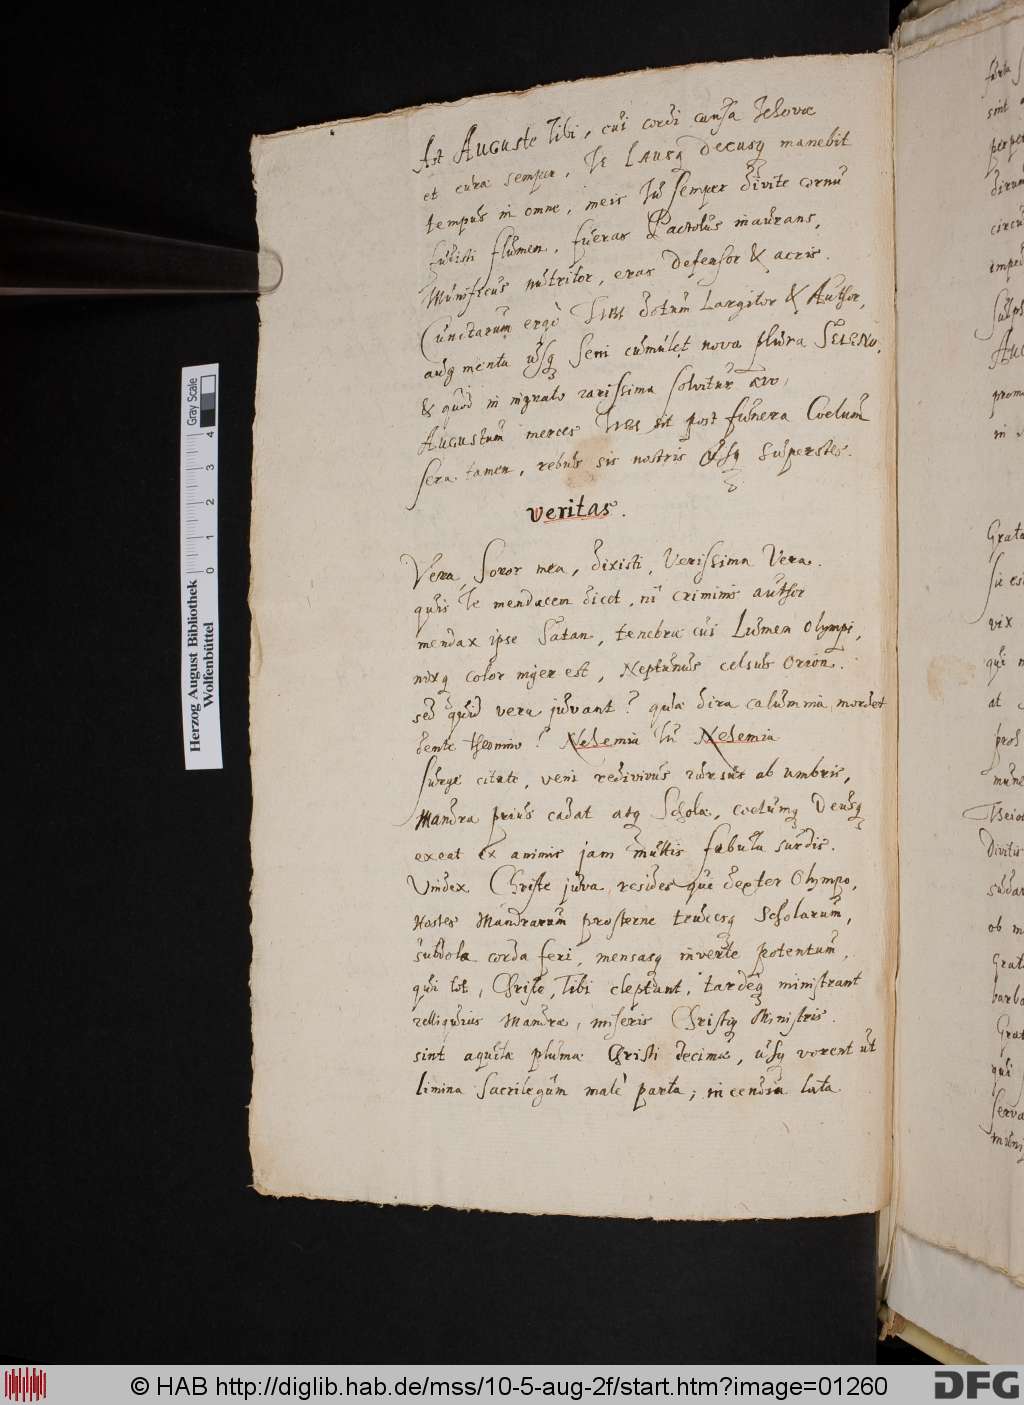 Ast AUGUste Tibi, cui cordi causa Jehovæ
et cura semper, Te LAUsq DECUSq manebit
tempus in omne, meis Tu semper divite cornu
fluxisti flumen, fueras Pactolus inaurans,
Munificus nutritor, eras defensor & acris.
Cunctarum ergò TIBI dotum Largitor & Author,
augmenta usq Seni cumulet nova plura SELENO,
& quod in ingrato rarissima solvitur ævo,
AUGUstum merces TIBI sit post funera Coelum
sera tamen, rebus sis nostris usq superstes.
Veritas.
Vera, Soror mea, dixisti, Verissima Vera.
quis Te mendacem dicet, ni criminis author
mendax ipse Satan, tenebræ cui Lumen Olympi,
nixq color niger est, Neptunus celsus Orion.
sed quid vera juvant? quæ dira calumnia mordet
dente theonino? Nehemia tu Nehemia
surge citato, veni redivivus rursus ab umbris,
Mandra prius cadat atq Schola, coelumq Deusq
exeat ex animis jam multis fabula surdis.
Vindex Christe juva, resides qui dexter Olympo,
Hostes Mandrarum prosterne trucesq Scholarum,
subdola corda feri, mensasq inverte potentum,
qui tot, Christe, Tibi cleptunt, tardeq ministrant
relliquias Mandræ, miseris Christiq Ministris.
sint aquilæ plumæ Christi decimæ, usq vorent ut
limina Sacrilegum malè parta; incendia lata
Gray Scale
0 1 2 3 4
Herzog August Bibliothek
Wolfenbüttel
Grata
vix
qui
at
Divitis
ob
Grat
© HAB http://diglib.hab.de/mss/10-5-aug-2f/start.htm?image=01260
DFG